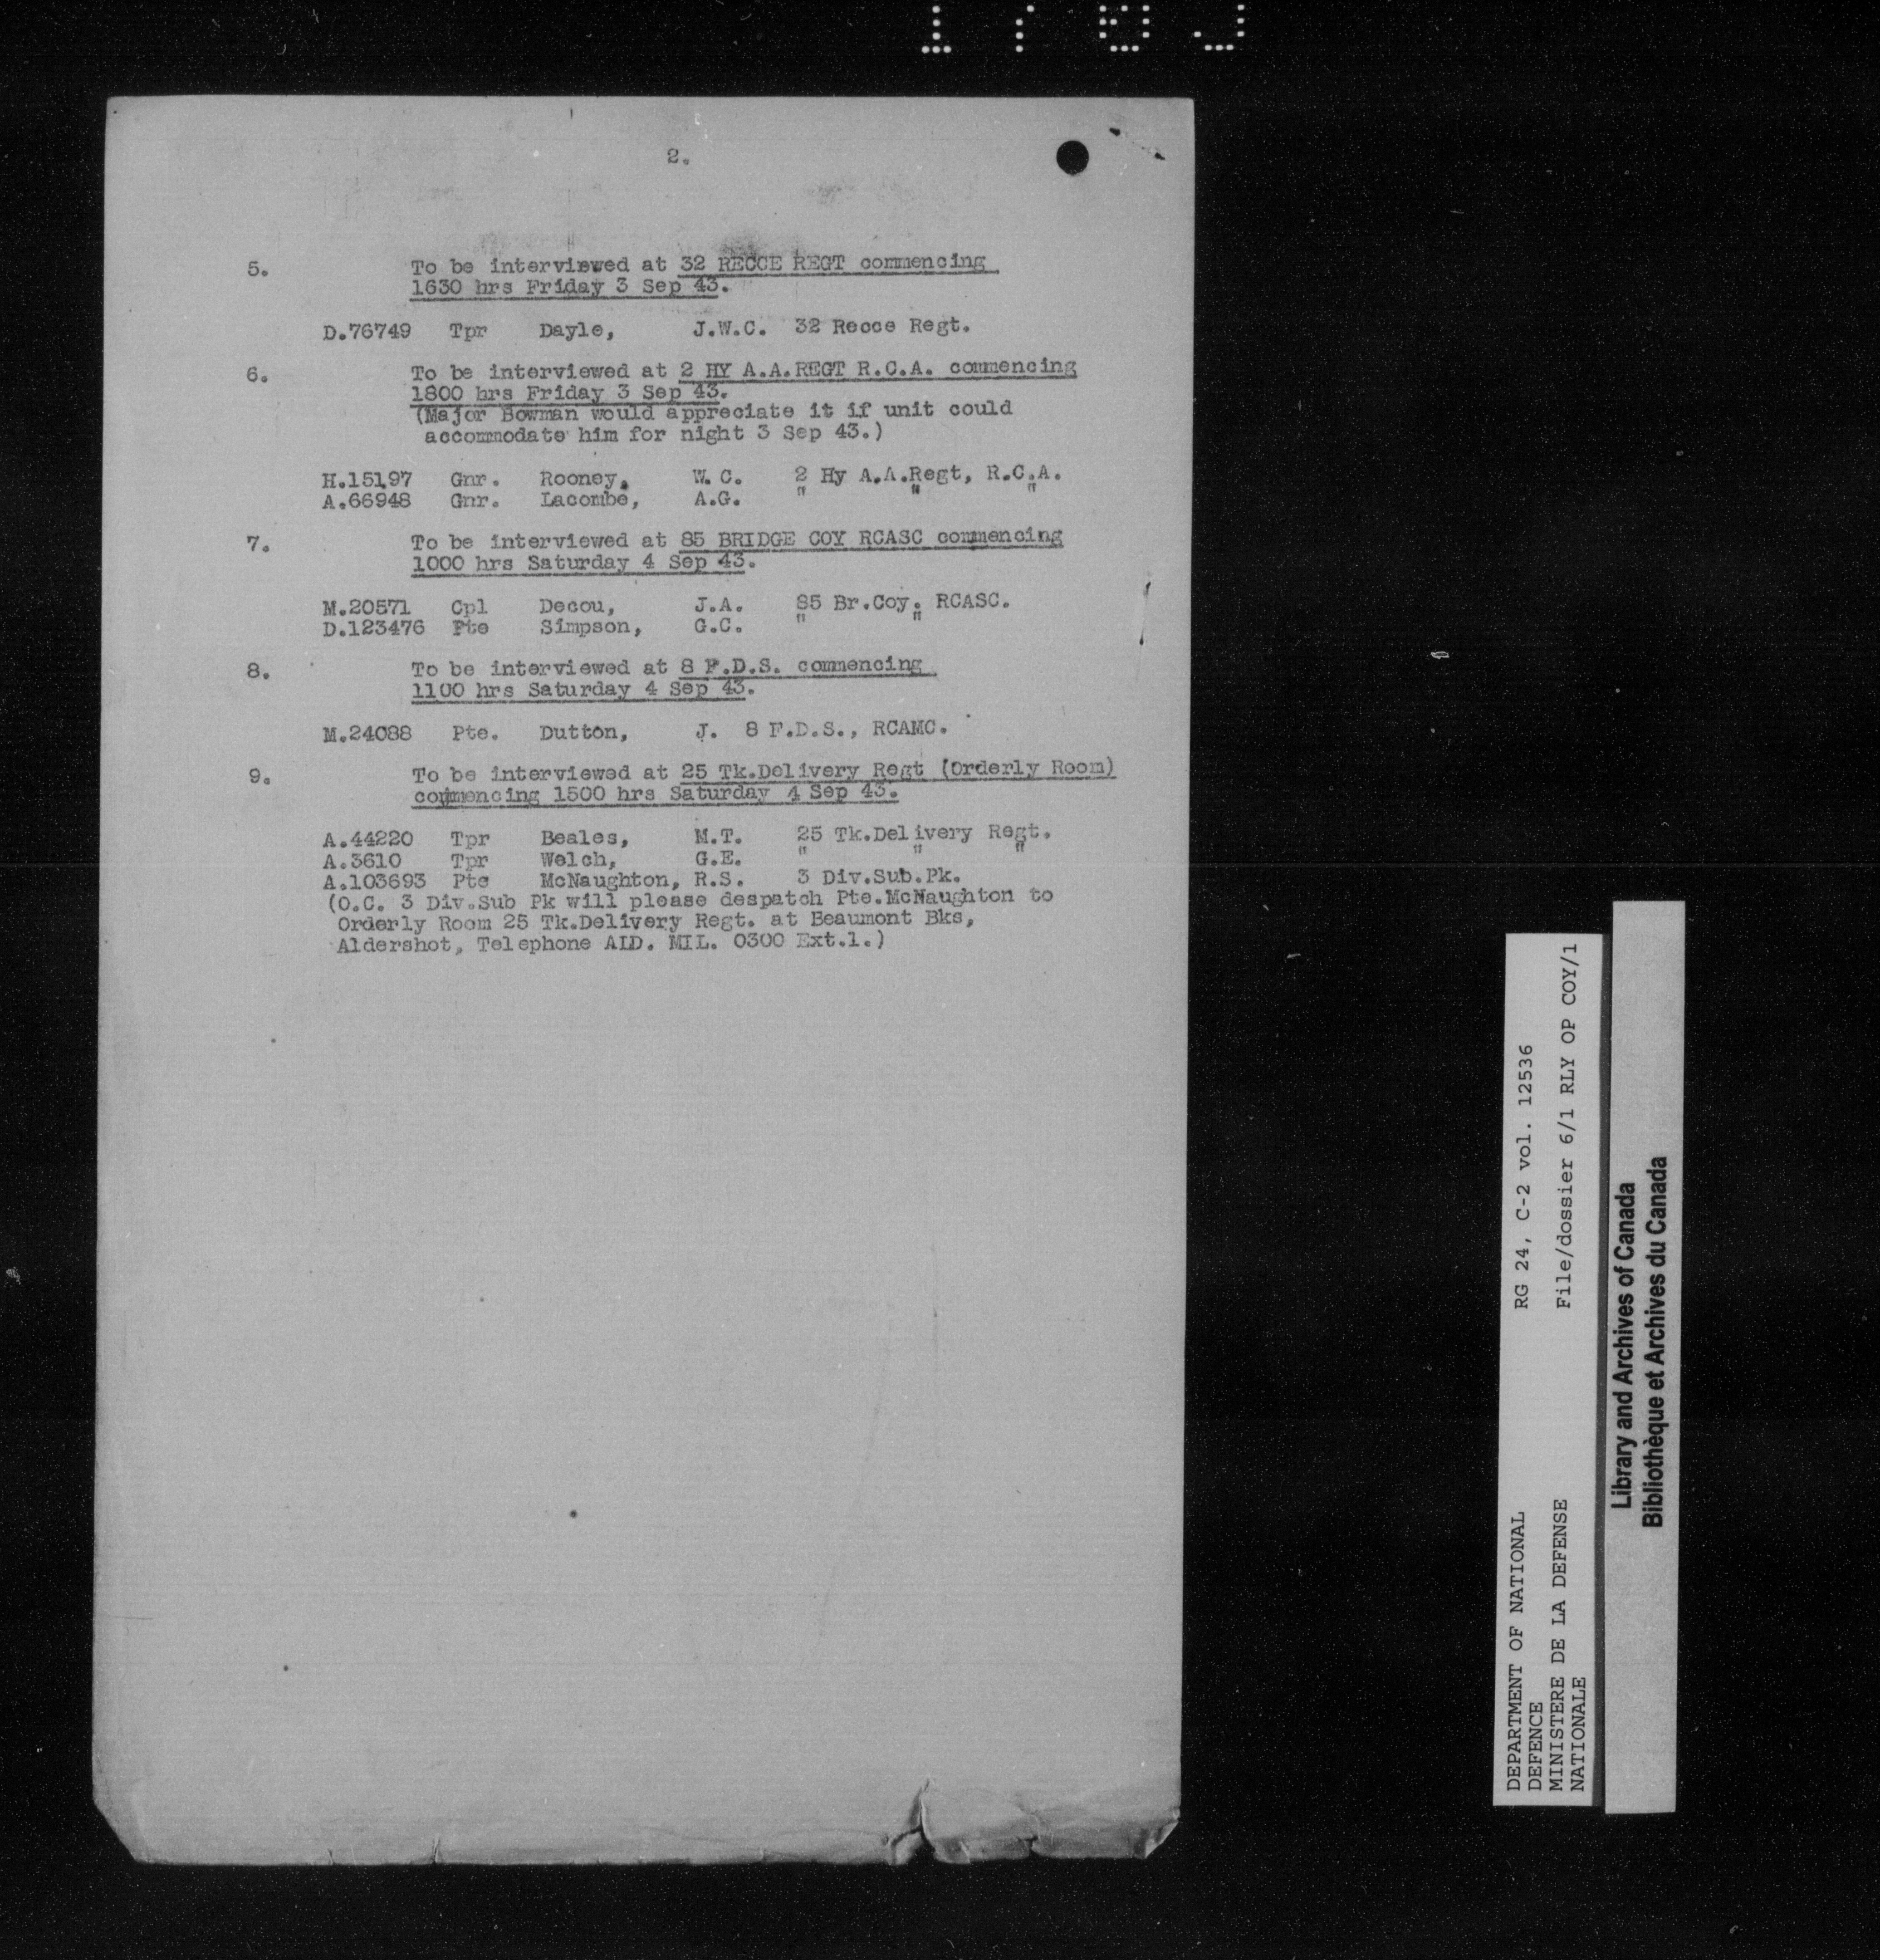 2.
5. To be interviewed at 32 RECCE REGT commencing
1630 hrs Friday 3 Sep 43.
D.76749 Tpr Dayle, J.W.C. 32 Recce Regt.
6. To be interviewed at 2 HY A.A.REGT R.C.A. commencing
1800 hrs Friday 3 Sep 43.
(Major Bowman would appreciate it if unit could
accommodate him for night 3 Sep 43.)
H.15197 Gnr. Rooney, W.C. 2 Hy A.A.Regt, R.C.A.
A.66948 Gnr. Lacombe, A.G. " " "
7. To be interviewed at 85 BRIDGE COY RCASC commencing
1000 hrs Saturday 4 Sep 43.
M.20571 Cpl Decou, J.A. 85 Br.Coy. RCASC.
D.123476 Pte Simpson, G.C. " "
8. To be interviewed at 8 F.D.S. commencing
1100 hrs Saturday 4 Sep 43.
M.24088 Pte. Dutton, J. 8 F.D.S., RCAMC.
9. To be interviewed at 25 Tk.Delivery Regt (Orderly Room)
commencing 1500 hrs Saturday 4 Sep 43.
A.44220 Tpr Beales, M.T. 25 Tk.Delivery Regt.
A.3610 Tpr Welch, G.E. " " "
A.103693 Pte McNaughton, R.S. 3 Div.Sub.Pk.
(O.C. 3 Div.Sub Pk will please despatch Pte.McNaughton to
Orderly Room 25 Tk.Delivery Regt. at Beaumont Bks,
Aldershot, Telephone ALD. MIL. 0300 Ext.1.)
DEPARTMENT OF NATIONAL RG 24, C-2 vol. 12536
DEFENCE
MINISTERE DE LA DEFENSE File/dossier 6/1 RLY OP COY/1
NATIONALE
Library and Archives of Canada
Bibliothèque et Archives du Canada